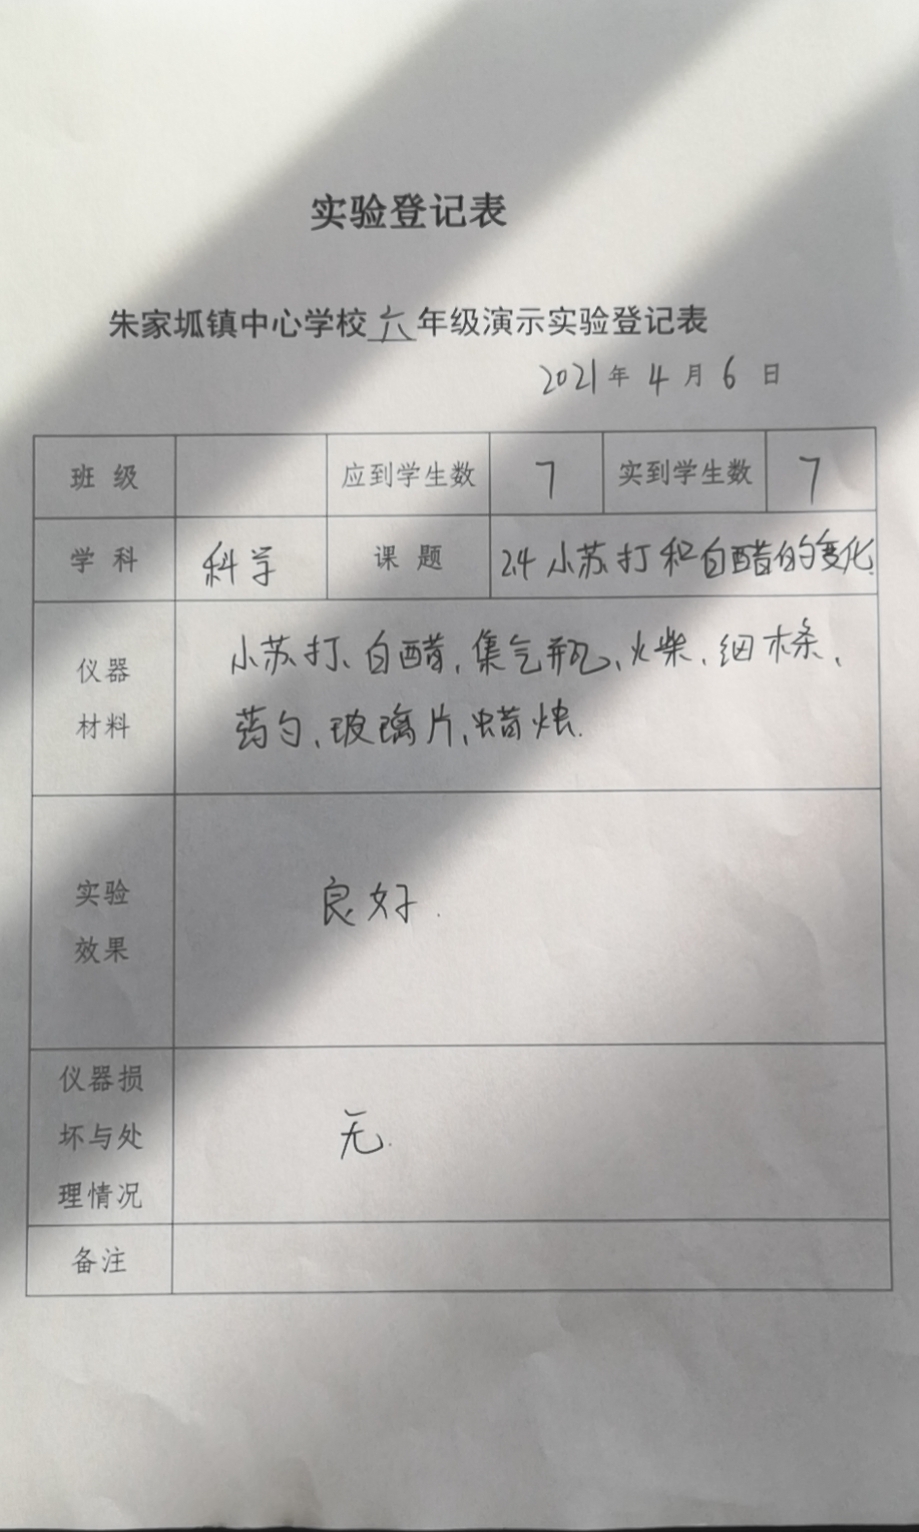 实验登记表
朱家坬镇中心学校六年级演示实验登记表
2021年4月6日
班级 应到学生数 7 实到学生数 7
学科 科学 课题 2.4小苏打和白醋的变化
仪器材料
小苏打、白醋、集气瓶、火柴、细木条、
药勺、玻璃片、蜡烛.
实验效果 良好.
仪器损坏与处理情况 无.
备注